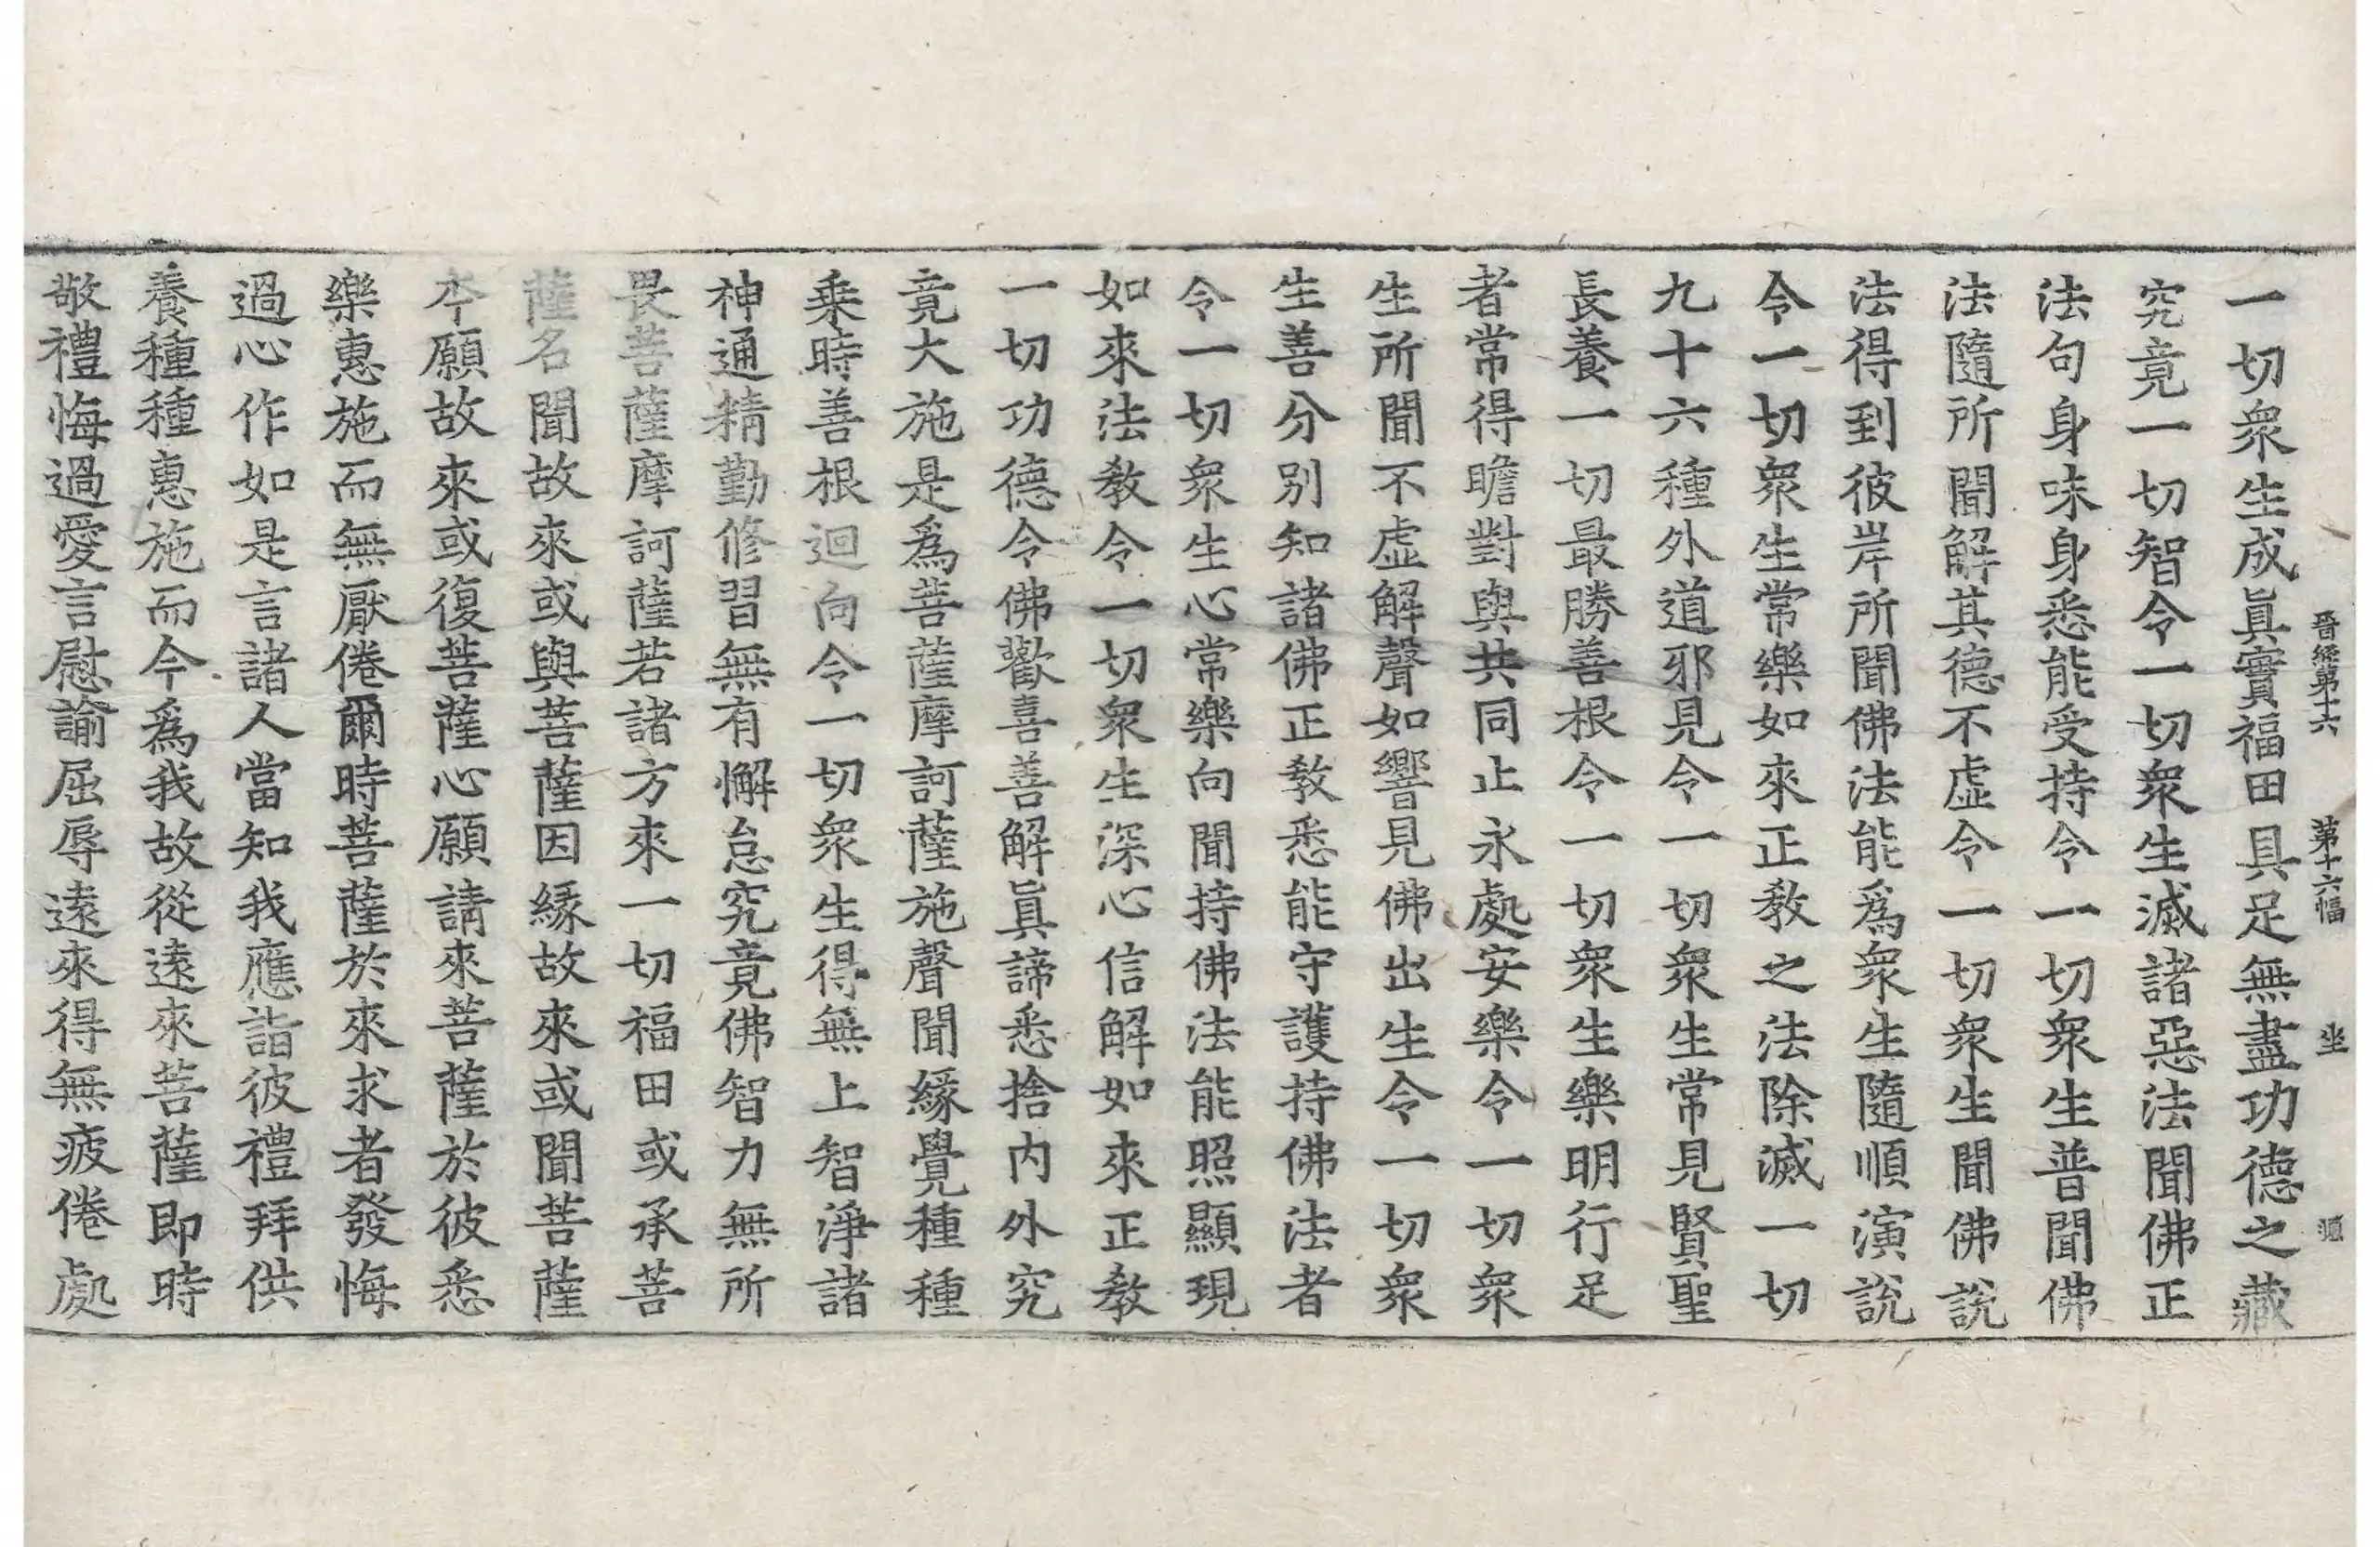 晉經第十六 第十六幅 坐
一切衆生成眞實福田具足無盡功德之藏
究竟一切智令一切衆生滅諸惡法聞佛正
法句身味身悉能受持令一切衆生普聞佛
法隨所聞解其德不虛令一切衆生聞佛說
法得到彼岸所聞佛法能爲衆生隨順演說
令一切衆生常樂如來正教之法除滅一切
九十六種外道邪見令一切衆生常見賢聖
長養一切最勝善根令一切衆生樂明行足
者常得瞻對與共同止永處安樂令一切衆
生所聞不虛解聲如響見佛出生令一切衆
生善分別知諸佛正教悉能守護持佛法者
令一切衆生心常樂向聞持佛法能照顯現
如來法教令一切衆生深心信解如來正教
一切功德令佛歡喜善解眞諦悉捨內外究
竟大施是爲菩薩摩訶薩施聲聞緣覺種種
乗時善根迴向令一切衆生得無上智淨諸
神通精勤修習無有懈怠究竟佛智力無所
畏菩薩摩訶薩若諸方來一切福田或承菩
薩名聞故來或與菩薩因緣故來或聞菩薩
夲願故來或復菩薩心願請來菩薩於彼悉
樂惠施而無厭倦爾時菩薩於來求者發悔
過心作如是言諸人當知我應詣彼禮拜供
養種種惠施而今爲我故從遠來菩薩即時
敬禮悔過愛言慰諭屈辱遠來得無疲倦處